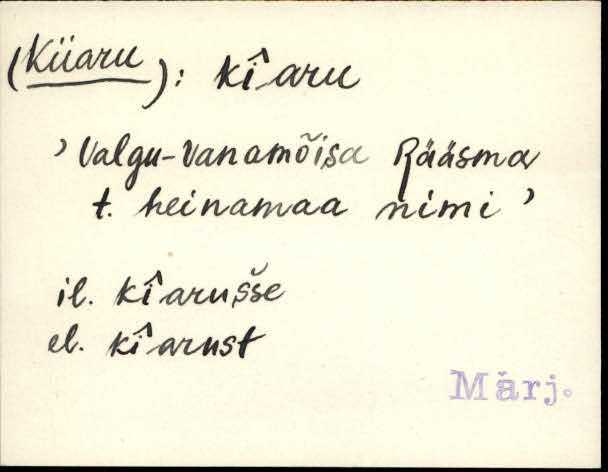 (Küaru): kî aru
’ Valgu-Vanamõisa Rääsma
t. heinamaa nimi ’
il. kî arušse
el. kî arust
Märj.